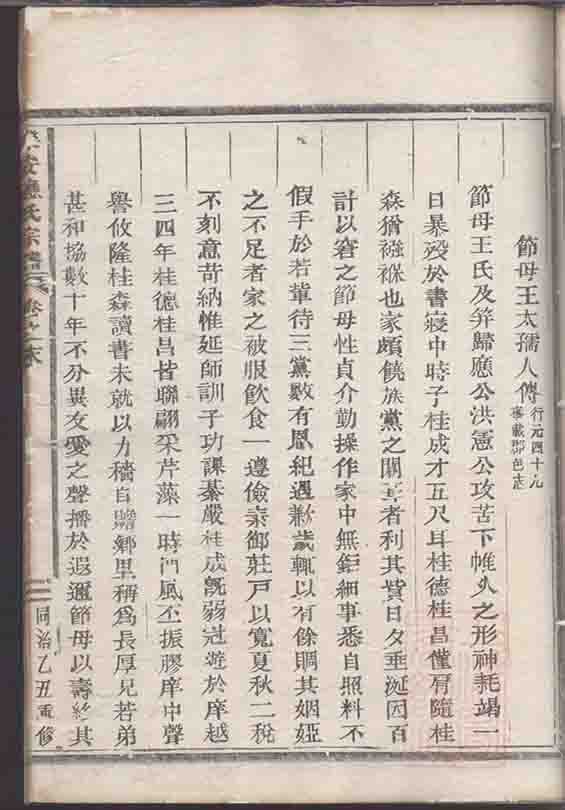 節母王太孺人傳 行元四十九
事載郡邑志
節母王氏及笄歸應公洪憲公攻苦下帷久之形神耗竭一
日暴歿於書寢中時子桂成才五尺耳桂德桂昌僅肩隨桂
森猶襁褓也家頗饒族黨之關者利其貲日夕垂涎因百
計以窘之節母性貞介勤操作家中無鉅細事悉自照料不
假手於若輩待三黨數有恩紀遇歉歲輒以有餘賙其姻婭
之不足者家之被服飲食一遵儉素御莊戶以寬夏秋二稅
不刻意苛納惟延師訓子功課綦嚴桂成旣弱冠遊於庠越
三四年桂德桂昌皆聯翩采芹藻一時門風丕振膠庠中聲
譽攸隆桂森讀書未就以力穡自贍鄉里稱為長厚兄若弟
甚和協數十年不分異友愛之聲播於遐邇節母以壽終其
安應氏宗譜 卷之末
同治乙丑重修